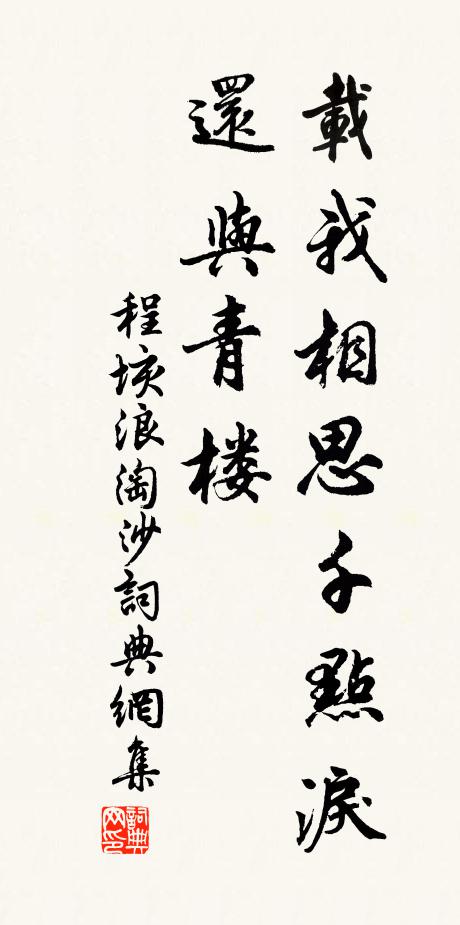 載我相思千點淚
還與青楼
程垓浪淘沙詞典網集
詞典
网印